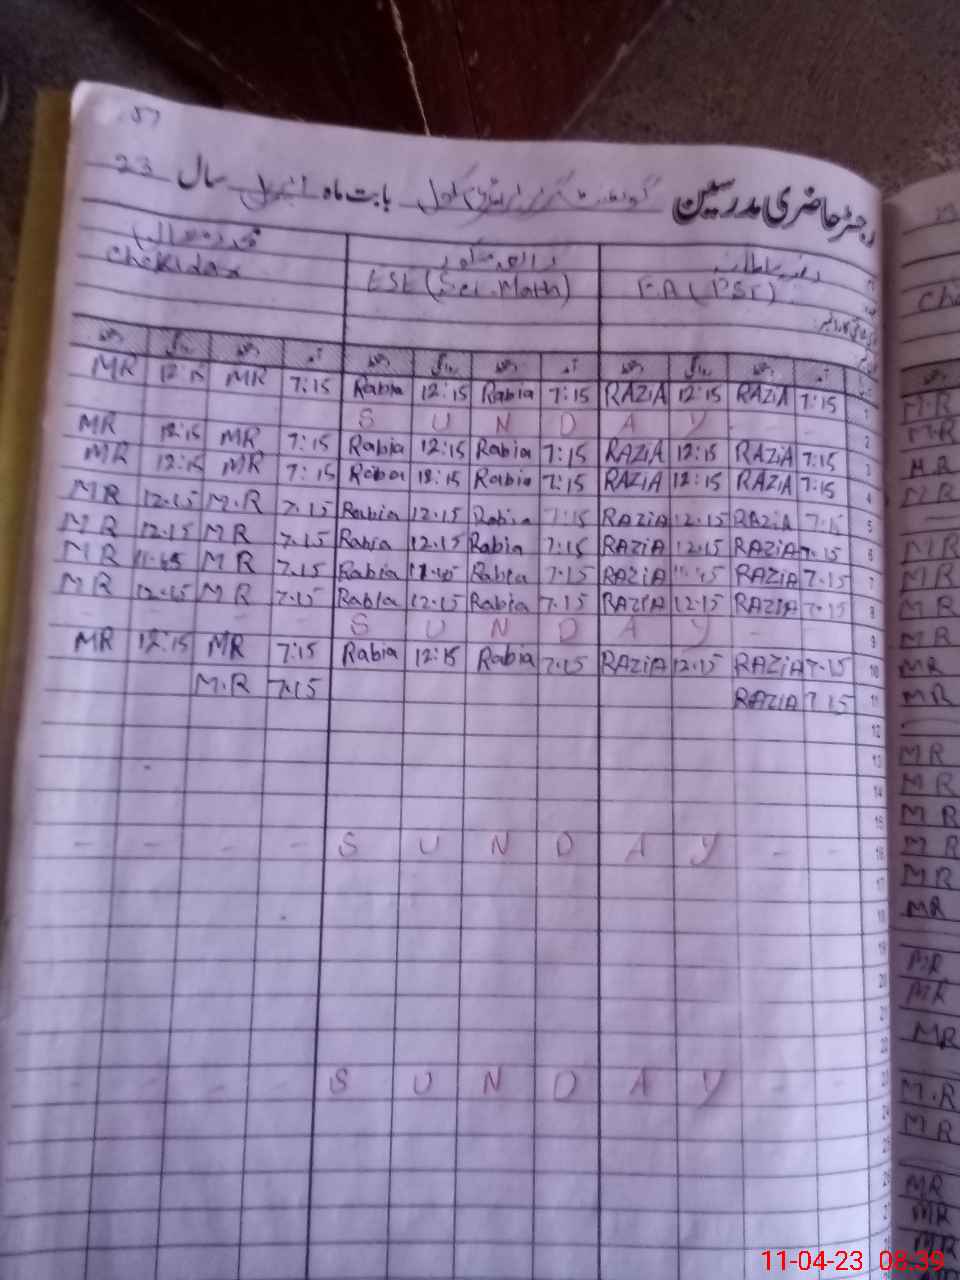 رجسٹر حاضری مدرسین گورنمنٹ گرلز سکول بابت ماہ اپریل سال 23
Chokidar EST (Sci.Math) (PST)
MR 12:15 MR 7:15 Rabia 12:15 Rabia 7:15 RAZIA 12:15 RAZIA 7:15 1
S U N D A Y 2
MR 12:15 MR 7:15 Rabia 12:15 Rabia 7:15 RAZIA 12:15 RAZIA 7:15 3
MR 12:15 MR 7:15 Rabia 12:15 Rabia 7:15 RAZIA 12:15 RAZIA 7:15 4
MR 12.15 M.R 7.15 Rabia 12.15 Rabia 7:15 RAZIA 12.15 RAZIA 7.15 5
MR 12.15 MR 7.15 Rabia 12.15 Rabia 7:15 RAZIA 12.15 RAZIA 7.15 6
MR 11.45 MR 7.15 Rabia 11.45 Rabia 7.15 RAZIA 11.45 RAZIA 7.15 7
MR 12.15 MR 7.15 Rabia 12.15 Rabia 7.15 RAZIA 12.15 RAZIA 7.15 8
S U N D A Y 9
MR 12:15 MR 7:15 Rabia 12:15 Rabia 7.15 RAZIA 12.15 RAZIA 7.15 10
M.R 7.15 RAZIA 7.15 11
12
13
14
15
S U N D A Y 16
17
18
19
20
21
22
S U N D A Y 23
24
25
26
27
MR
M.R
MR
MR
MR
MR
MR
MR
MR
MR
MR
MR
MR
MR
MR
MR
MR
MR
MR
M.R
MR
MR
MR
MR
11-04-23 08:39